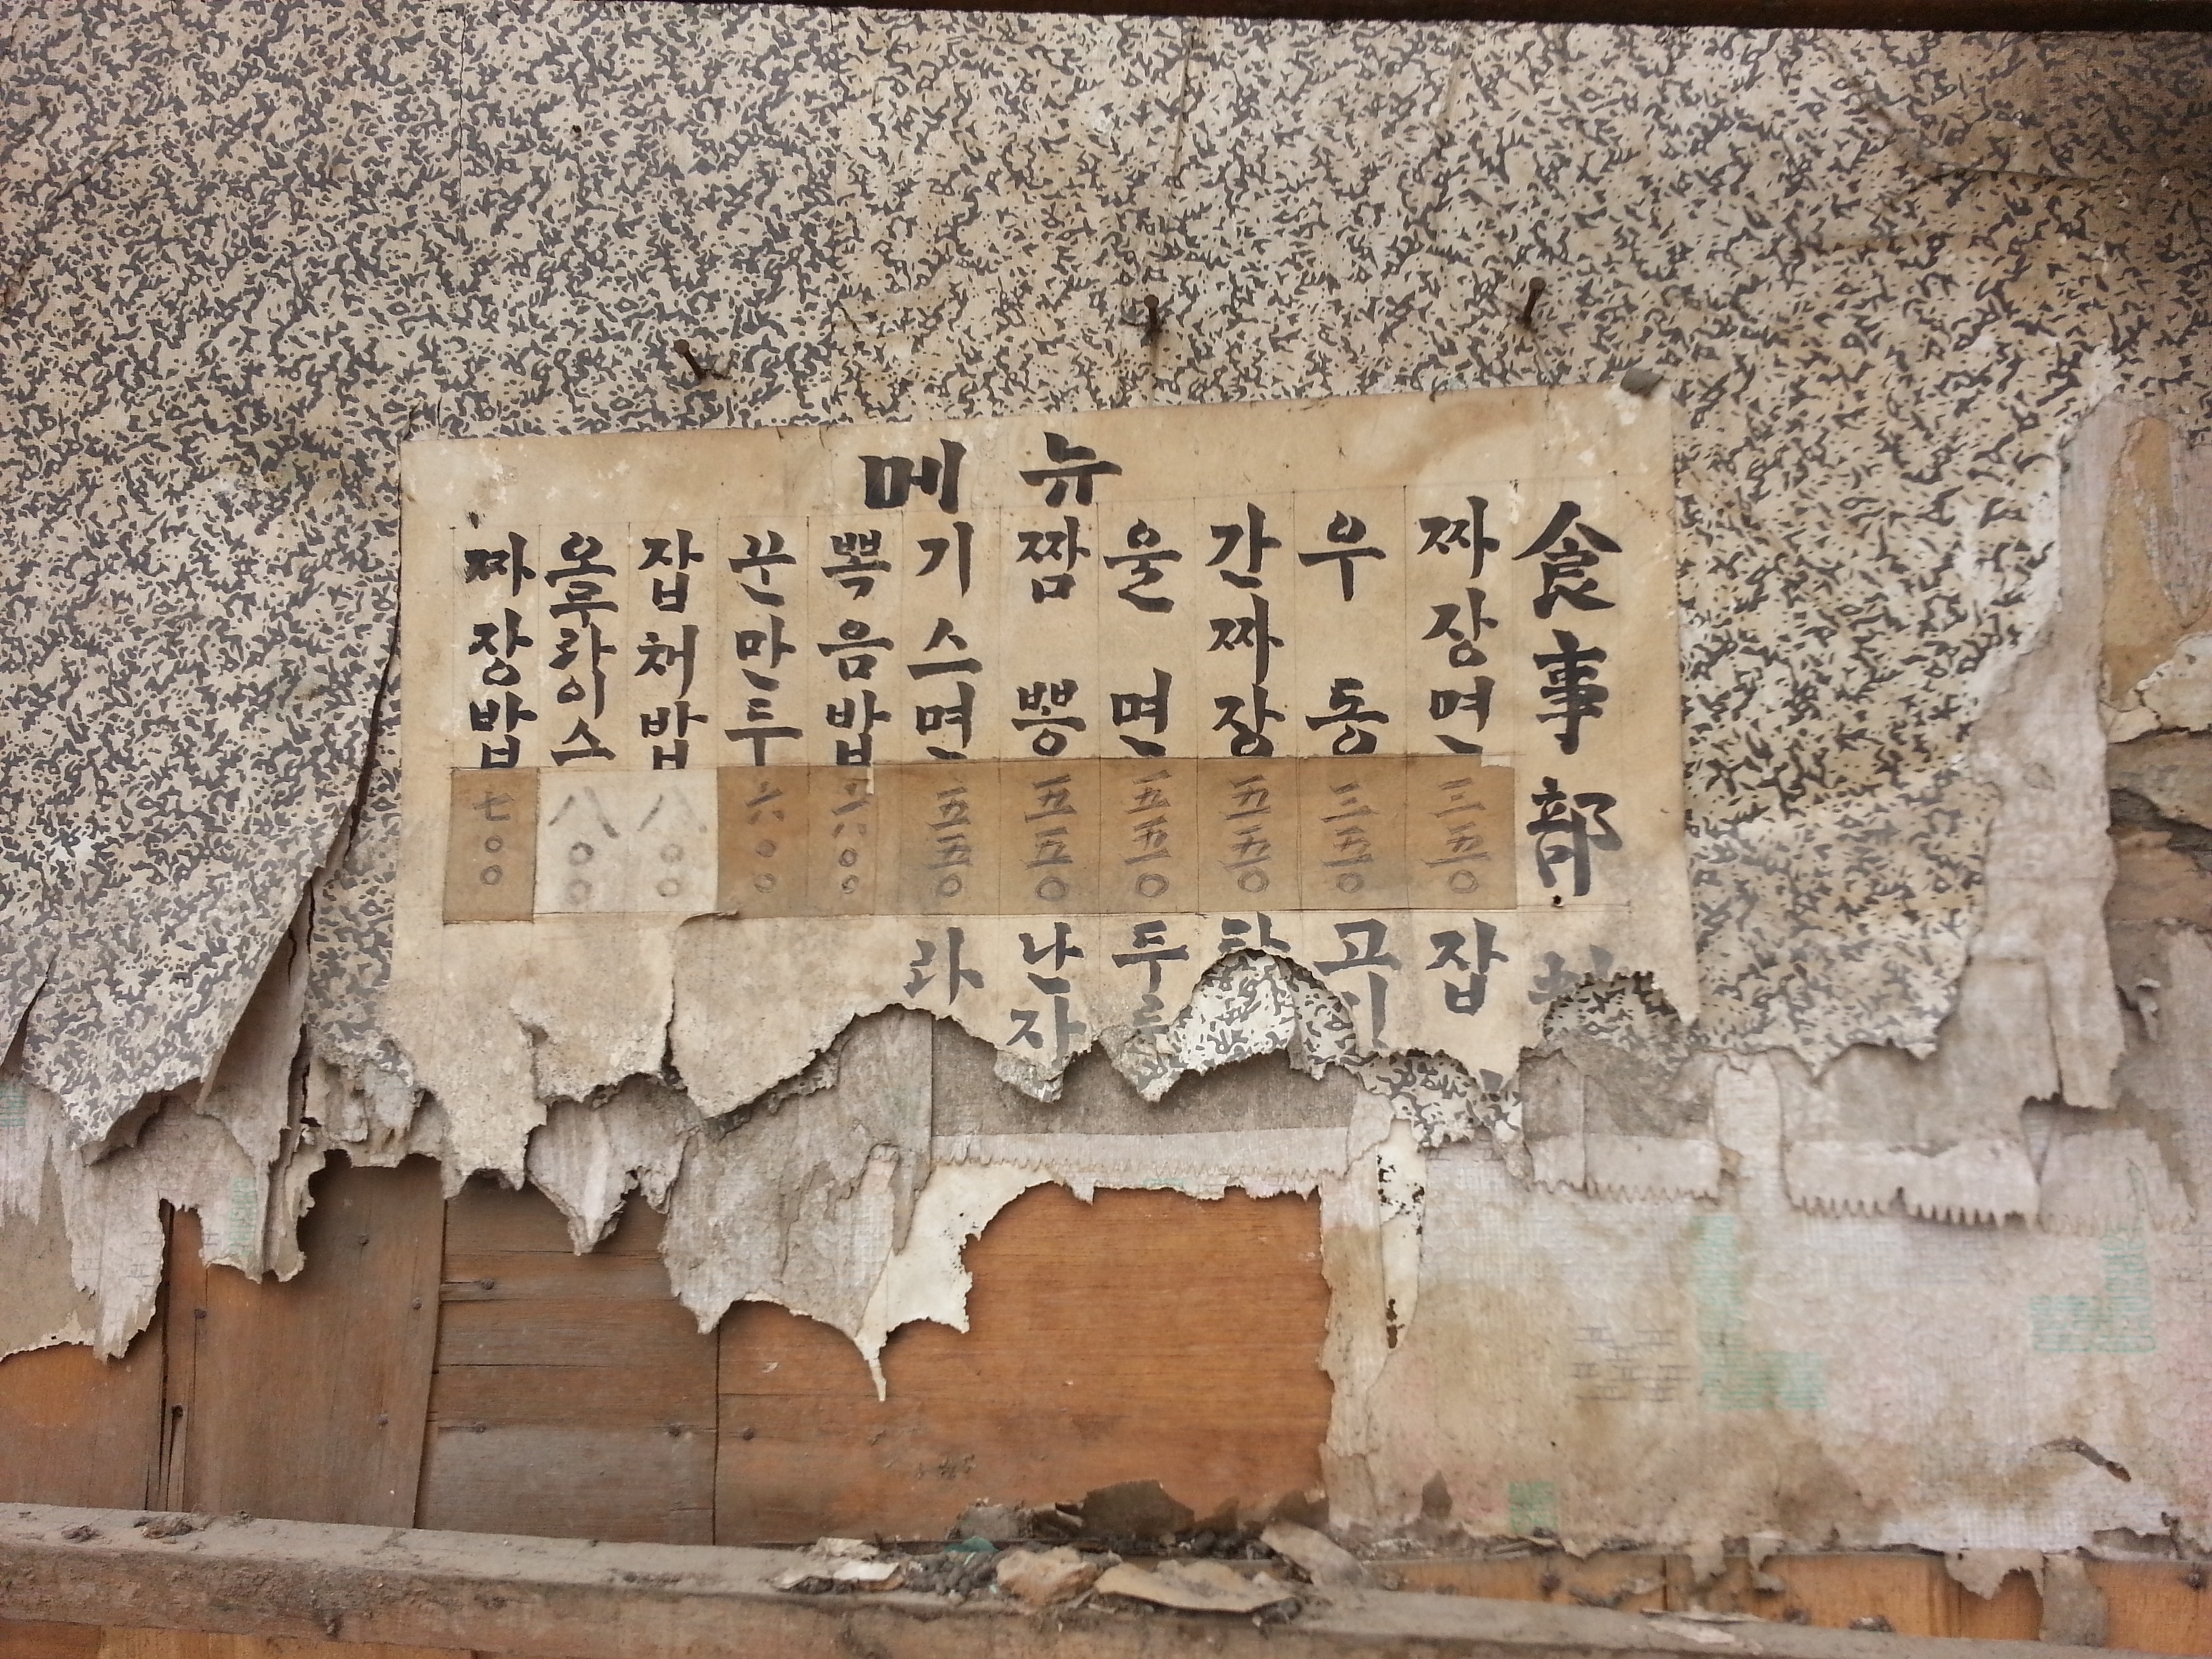 메뉴
食事部
짜장면 三五〇
우동 三五〇
간짜장 五五〇
울면 五五〇
짬뽕 五五〇
기스면 五五〇
뽁음밥 六〇〇
꾼만두 六〇〇
잡채밥 八〇〇
오무라이스 八〇〇
짜장밥 七〇〇
잡
고기
탕
두
난자
라